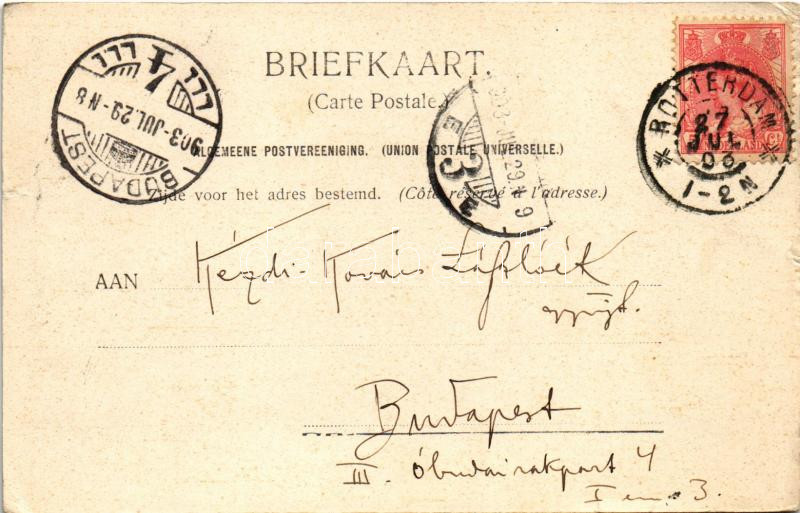 BRIEFKAART.
(Carte Postale.)
ALGEMEENE POSTVEREENIGING. (UNION POSTALE UNIVERSELLE.)
Zijde voor het adres bestemd. (Côté réservé à l'adresse.)
AAN Kézdi-Kovács Lászlóék
Budapest
III. Óbudai rakpart 4
I em. 3.
BUDAPEST
903-JUL.29-N8
ROTTERDAM
27
JUL
1-2 N
NEDERLAND